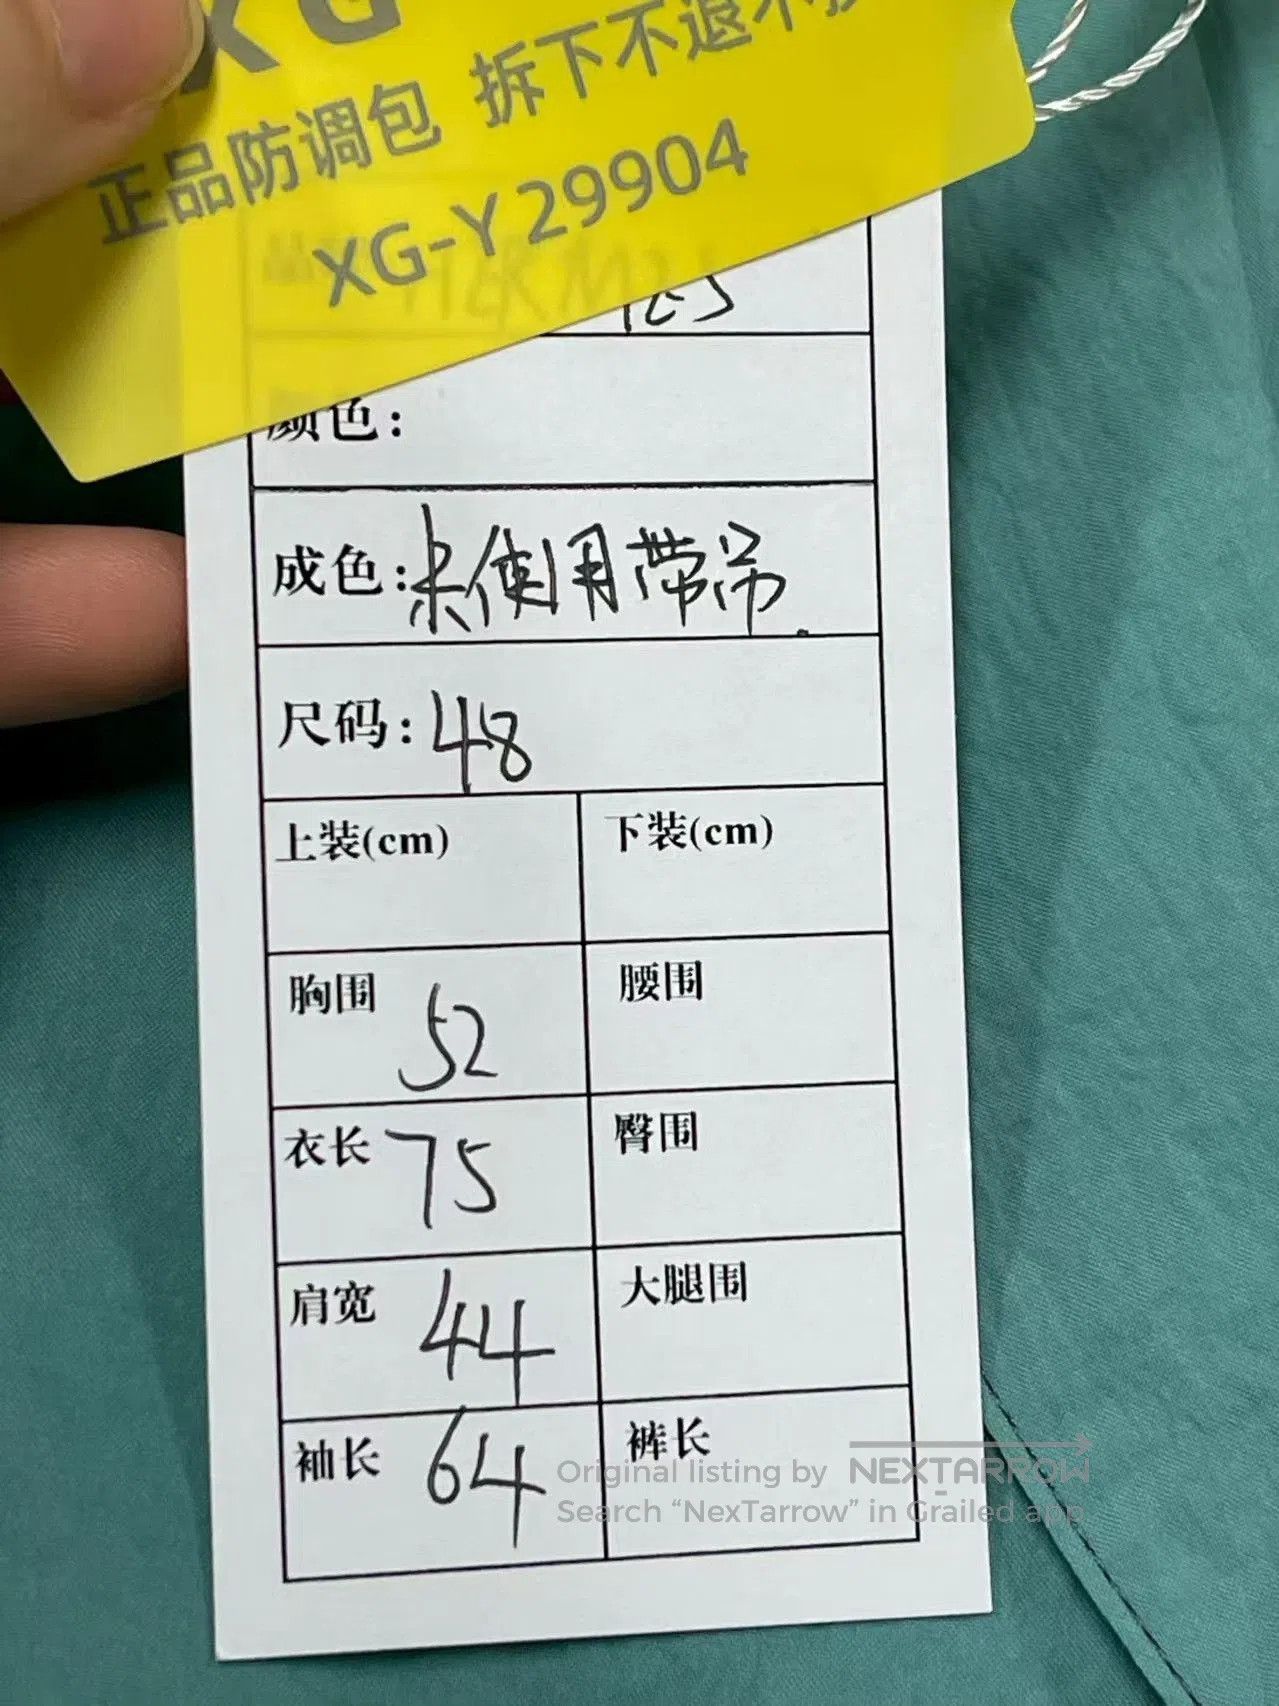 XG
正品防调包 拆下不退不换
XG-Y29904
颜色:
成色:未使用带吊.
尺码:48
上装(cm) 下装(cm)
胸围 52 腰围
衣长 75 臀围
肩宽 44 大腿围
袖长 64 裤长
Original listing by NEXTARROW
Search “NexTarrow” in Grailed app